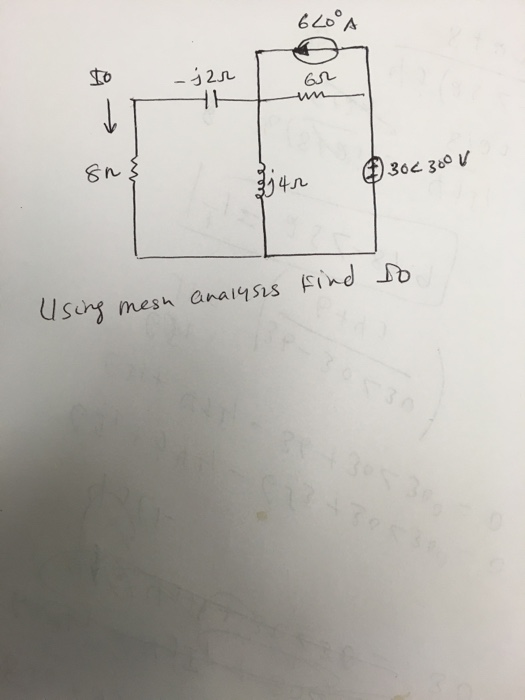 6∠0° A
Io
-j2Ω
6Ω
8Ω
j4Ω
30∠30° V
Using mesh analysis Find Io